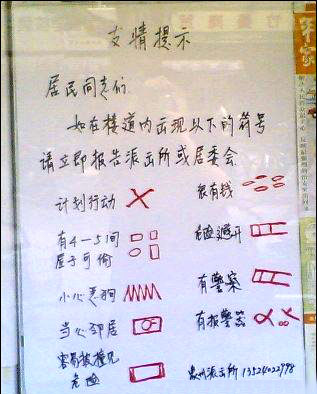 友情提示
居民同志们
如在楼道内出现以下的符号
请立即报告派出所或居委会
计划行动
很有钱
有4-5间
屋子可偷
危险避开
小心恶狗
有警察
当心邻居
有报警器
容易被撞见
危险
泉州派出所 13524022998